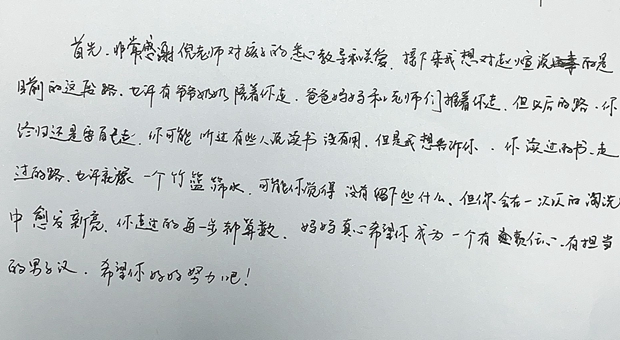 首先,非常感谢倪老师对孩子的悉心教导和关爱,接下来我想对赵煊说,而是
目前的这段路,也许有爷爷奶奶陪着你走,爸爸妈妈和老师们推着你走,但以后的路,你
终归还是要自己走,你可能听过有些人说读书没有用,但是我想告诉你,你读过的书、走
过的路,也许就像一个竹篮筛水,可能你觉得没有留下些什么,但你会在一次次的淘洗
中愈发新亮,你走过的每一步都算数,妈妈真心希望你成为一个有责任心、有担当
的男子汉,希望你好好努力吧!